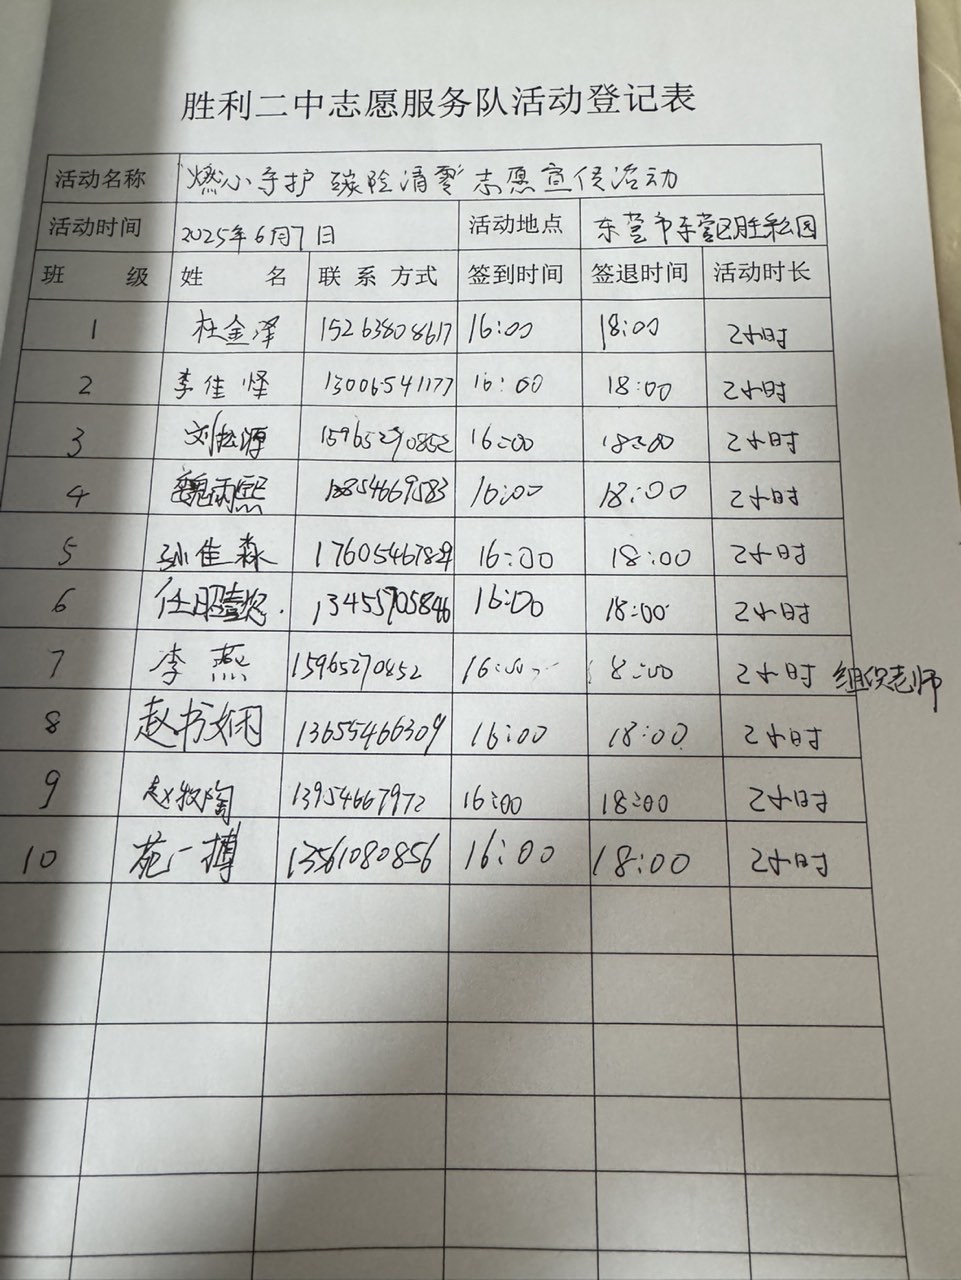 胜利二中志愿服务队活动登记表
活动名称 燃心守护 隐险清零 志愿宣传活动
活动时间 2025年6月7日 活动地点 东营市东营区胜利公园
班 级 姓 名 联系方式 签到时间 签退时间 活动时长
1 杜金泽 15263808617 16:00 18:00 2小时
2 李佳怿 13006541177 16:00 18:00 2小时
3 刘松源 15965270852 16:00 18:00 2小时
4 魏丙熙 18854669583 16:00 18:00 2小时
5 孙佳森 17605467829 16:00 18:00 2小时
6 任昭 13455705846 16:00 18:00 2小时
7 李燕 15965270852 16:00 18:00 2小时 组织老师
8 赵书娴 13655466309 16:00 18:00 2小时
9 赵牧陶 13954667972 16:00 18:00 2小时
10 苑一搏 13561080856 16:00 18:00 2小时